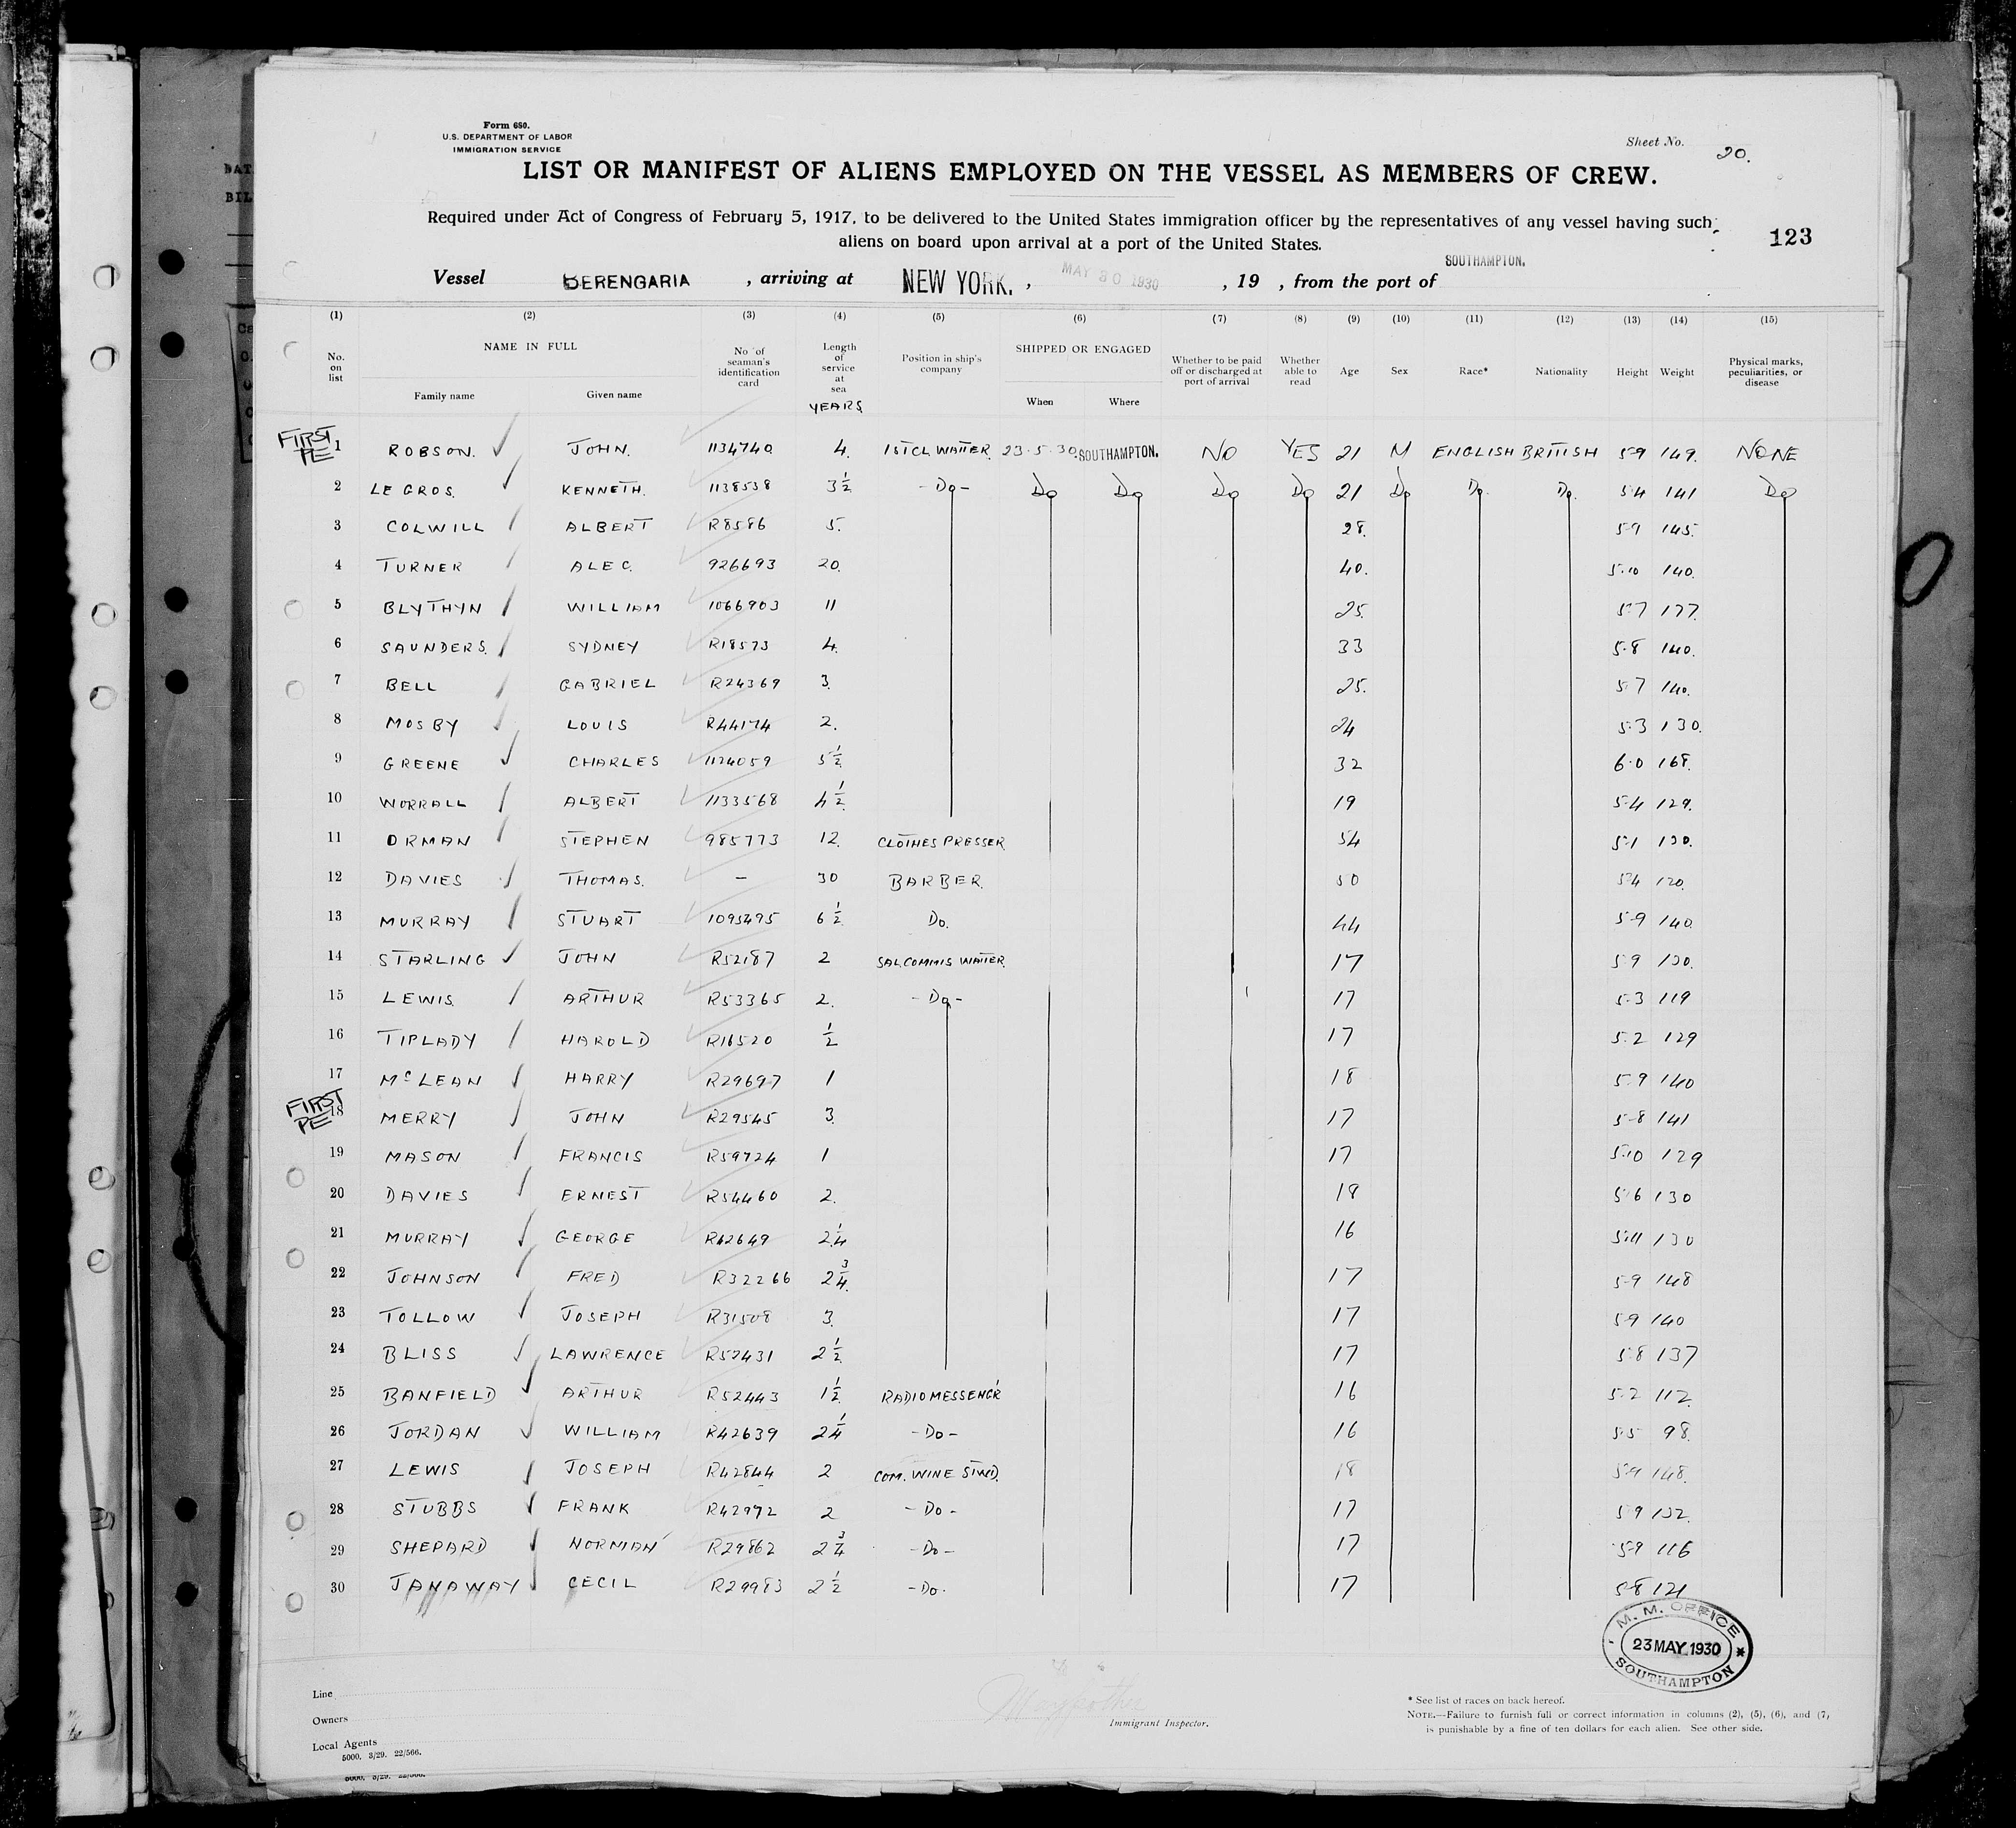 Form 680.
U.S. DEPARTMENT OF LABOR
IMMIGRATION SERVICE
Sheet No. 20.
LIST OR MANIFEST OF ALIENS EMPLOYED ON THE VESSEL AS MEMBERS OF CREW.
Required under Act of Congress of February 5, 1917, to be delivered to the United States immigration officer by the representatives of any vessel having such
aliens on board upon arrival at a port of the United States.
123
Vessel BERENGARIA , arriving at NEW YORK. , MAY 30 1930 , 19 , from the port of SOUTHAMPTON.
(1) (2) (3) (4) (5) (6) (7) (8) (9) (10) (11) (12) (13) (14) (15)
No. on list NAME IN FULL Family name Given name No. of seaman's identification card Length of service at sea YEARS Position in ship's company SHIPPED OR ENGAGED When Where Whether to be paid off or discharged at port of arrival Whether able to read Age Sex Race* Nationality Height Weight Physical marks, peculiarities, or disease
FIRST PE 1 ROBSON. JOHN. 1134740 4. 1STCL WAITER. 23.5.30. SOUTHAMPTON. NO YES 21 M ENGLISH BRITISH 5-9 149. NONE
2 LE GROS. KENNETH. 1138538 3½ -Do- Do Do Do Do 21 Do Do. Do. 5.4 141 Do
3 COLWILL ALBERT R8586 5. 28. 5-9 145.
4 TURNER ALEC. 926693 20. 40. 5.10 140.
5 BLYTHYN WILLIAM 1066903 11 25. 5.7 177.
6 SAUNDERS. SYDNEY R18573 4. 33 5.8 140.
7 BELL GABRIEL R24369 3. 25. 5.7 140.
8 MOSBY LOUIS R44174 2. 24 5.3 130.
9 GREENE CHARLES 1124059 5½ 32 6.0 168.
10 WORRALL ALBERT 1133568 4½ 19 5-4 129.
11 ORMAN STEPHEN 985773 12. CLOTHES PRESSER 54 5-1 130.
12 DAVIES THOMAS. - 30 BARBER. 50 5-4 120.
13 MURRAY STUART 1095495 6½ Do. 44 5-9 140.
14 STARLING JOHN R52187 2 SAL.COMMIS WAITER. 17 5.9 130.
15 LEWIS. ARTHUR R53365 2. -Do- 17 5-3 119
16 TIPLADY HAROLD R16520 ½ 17 5.2 129
17 McLEAN HARRY R29697 1 18 5.9 140
FIRST PE 18 MERRY JOHN R29545 3. 17 5-8 141
19 MASON FRANCIS R59724 1 17 5.10 129
20 DAVIES ERNEST R54460 2. 18 5.6 130
21 MURRAY GEORGE R42649 2¼ 16 5.11 130
22 JOHNSON FRED R32266 2¾ 17 5-9 148
23 TOLLOW JOSEPH R31508 3. 17 5.9 140
24 BLISS LAWRENCE R52431 2½ 17 5.8 137
25 BANFIELD ARTHUR R52443 1½ RADIO MESSENGR 16 5.2 112.
26 JORDAN WILLIAM R42639 2¼ -Do- 16 5.5 98.
27 LEWIS JOSEPH R42844 2 COM. WINE STWD. 18 5.9 148.
28 STUBBS FRANK R42972 2 -Do- 17 5.9 132.
29 SHEPARD NORMAN R29862 2¾ -Do- 17 5-9 116
30 JANAWAY CECIL R29983 2½ -Do. 17 5.8 121
M. M. OFFICE
23 MAY 1930
SOUTHAMPTON
Line
Owners
Local Agents
5000. 3/29. 22/566.
Immigrant Inspector.
* See list of races on back hereof.
NOTE.—Failure to furnish full or correct information in columns (2), (5), (6), and (7,
is punishable by a fine of ten dollars for each alien. See other side.
5000. 3/29. 22/566.